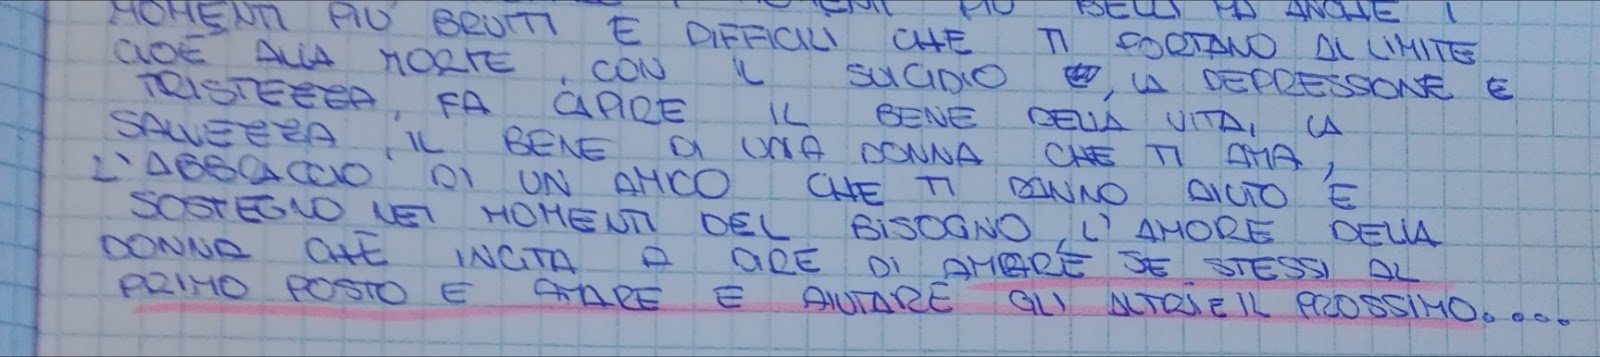 MOMENTI PIÙ BRUTTI E DIFFICILI CHE TI PORTANO AL LIMITE
CIOÈ ALLA MORTE, CON IL SUICIDIO, LA DEPRESSIONE E
TRISTEZZA, FA CAPIRE IL BENE DELLA VITA, LA
SALVEZZA, IL BENE DI UNA DONNA CHE TI AMA,
L'ABBRACCIO DI UN AMICO CHE TI DANNO AIUTO E
SOSTEGNO NEI MOMENTI DEL BISOGNO, L'AMORE DELLA
DONNA CHE INCITA A DIRE DI AMARE SE STESSI AL
PRIMO POSTO E AMARE E AIUTARE GLI ALTRI E IL PROSSIMO....